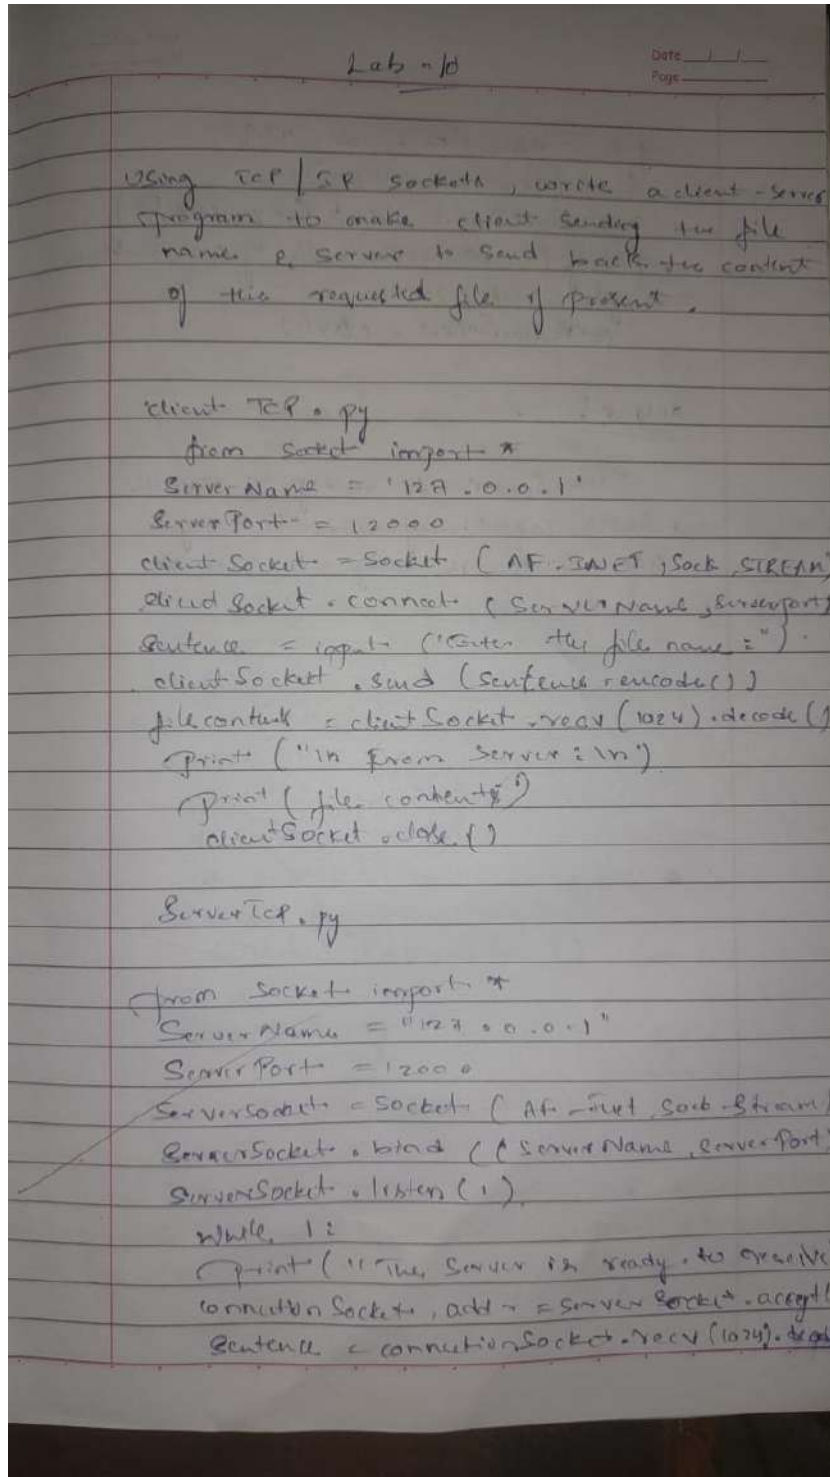 Lab - 10
Date __/__/__
Page
Using TCP/IP sockets, write a client-server
program to make client sending the file
name & server to send back the content
of the requested file if present.
client TCP.py
from socket import *
ServerName = '127.0.0.1'
ServerPort = 12000
client Socket = Socket (AF-INET, Sock STREAM)
client Socket.connect (ServerName, Serverport)
Sentence = input ("Enter the file name:")
clientSocket.send (sentence.encode())
filecontents = clientSocket.recv(1024).decode()
print ("\n From Server: \n")
print (file contents)
clientSocket.close()
ServerTCP.py
from socket import *
ServerName = "127.0.0.1"
ServerPort = 12000
ServerSocket = Socket (AF-inet Sock-Stream)
ServerSocket.bind ((ServerName, ServerPort)
ServerSocket.listen(1)
while 1:
print ("The Server is ready to receive
connection Socket, addr = Server Socket.accept(
Sentence = connectionSocket.recv(1024).deco